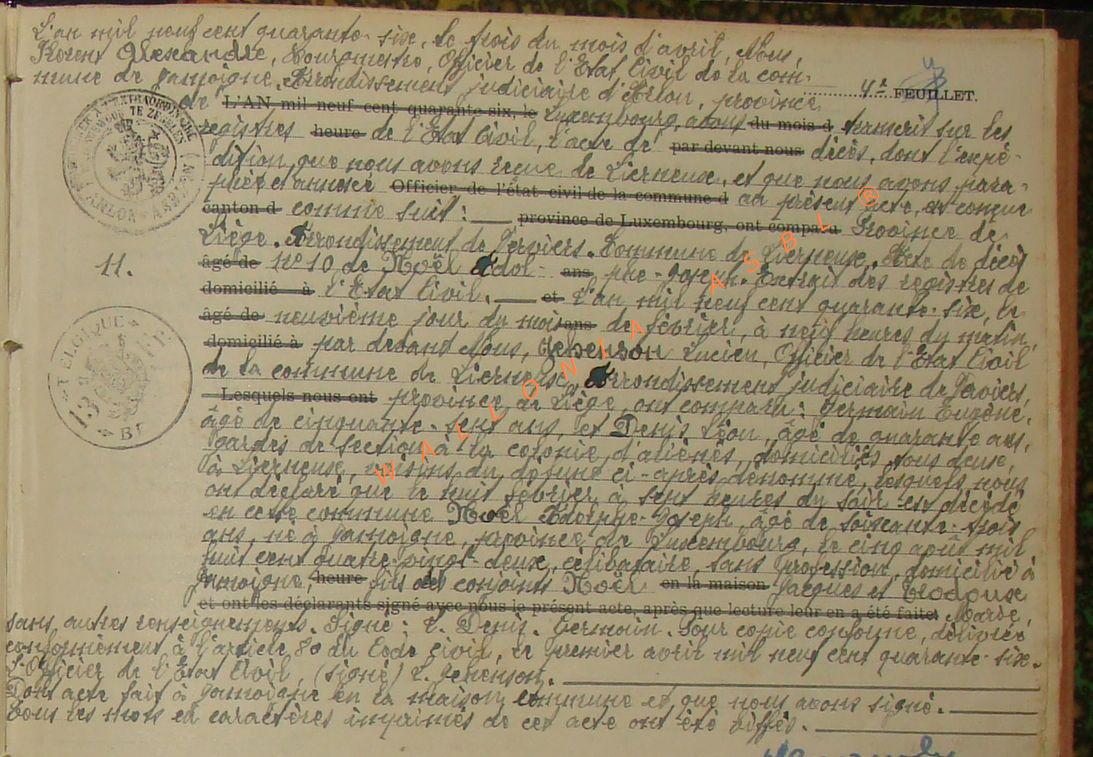 L'an mil neuf cent quarante-six, le trois du mois d'avril, Nous,
Florent Alexandre, Bourgmestre, Officier de l'Etat Civil de la com-
mune de Jamoigne, Arrondissement judiciaire d'Arlon, province
4e FEUILLET.
de L'AN mil neuf cent quarante-six, le Luxembourg, avons du mois d transcrit sur les
registres heure de l'Etat Civil, l'acte de par devant nous décès, dont l'expé-
dition que nous avons reçue de Lierneux, et que nous avons para-
phée et annexée Officier de l'état civil de la commune d au présent acte, est conçue
canton d comme suit : province de Luxembourg, ont comparu Province de
Liège. Arrondissement de Verviers. Commune de Lierneux. Acte de décès
11.
âgé de N° 10 de Noël Adol- ans, phe-Joseph. Extrait des registres de
domicilié à l'Etat Civil. et L'an mil neuf cent quarante-six, le
âgé de neuvième jour du mois ans de février, à neuf heures du matin,
domicilié à par devant Nous, Gehenson Lucien, Officier de l'Etat Civil
de la commune de Lierneux, Arrondissement judiciaire de Verviers,
Lesquels nous ont province de Liège, ont comparu : Germain Eugène,
âgé de cinquante-sept ans, et Denis Léon, âgé de quarante ans,
gardes de section à la colonie d'aliénés, domiciliés tous deux,
à Lierneux, voisins du défunt ci-après dénommé, lesquels nous
ont déclaré que le huit février à sept heures du soir est décédé
en cette commune Noël Adolphe-Joseph, âgé de soixante-trois
ans, né à Jamoigne, province de Luxembourg, le cinq août mil
huit cent quatre-vingt-deux, célibataire, sans profession, domicilié à
Jamoigne, heure fils des conjoints Noël en la maison Jacques et
et ont les déclarants signé avec nous le présent acte, après que lecture leur en a été faite. Marie,
sans autres renseignements. Signé : L. Denis. Germain. Pour copie conforme, délivrée
conformément à l'article 80 du Code Civil, le premier avril mil neuf cent quarante-six.
L'Officier de l'Etat Civil, (signé) L. Gehenson.
Dont acte fait à Jamoigne en la maison commune et que nous avons signé.
Tous les mots en caractères imprimés de cet acte ont été biffés.
WALLONIA ASBL ©